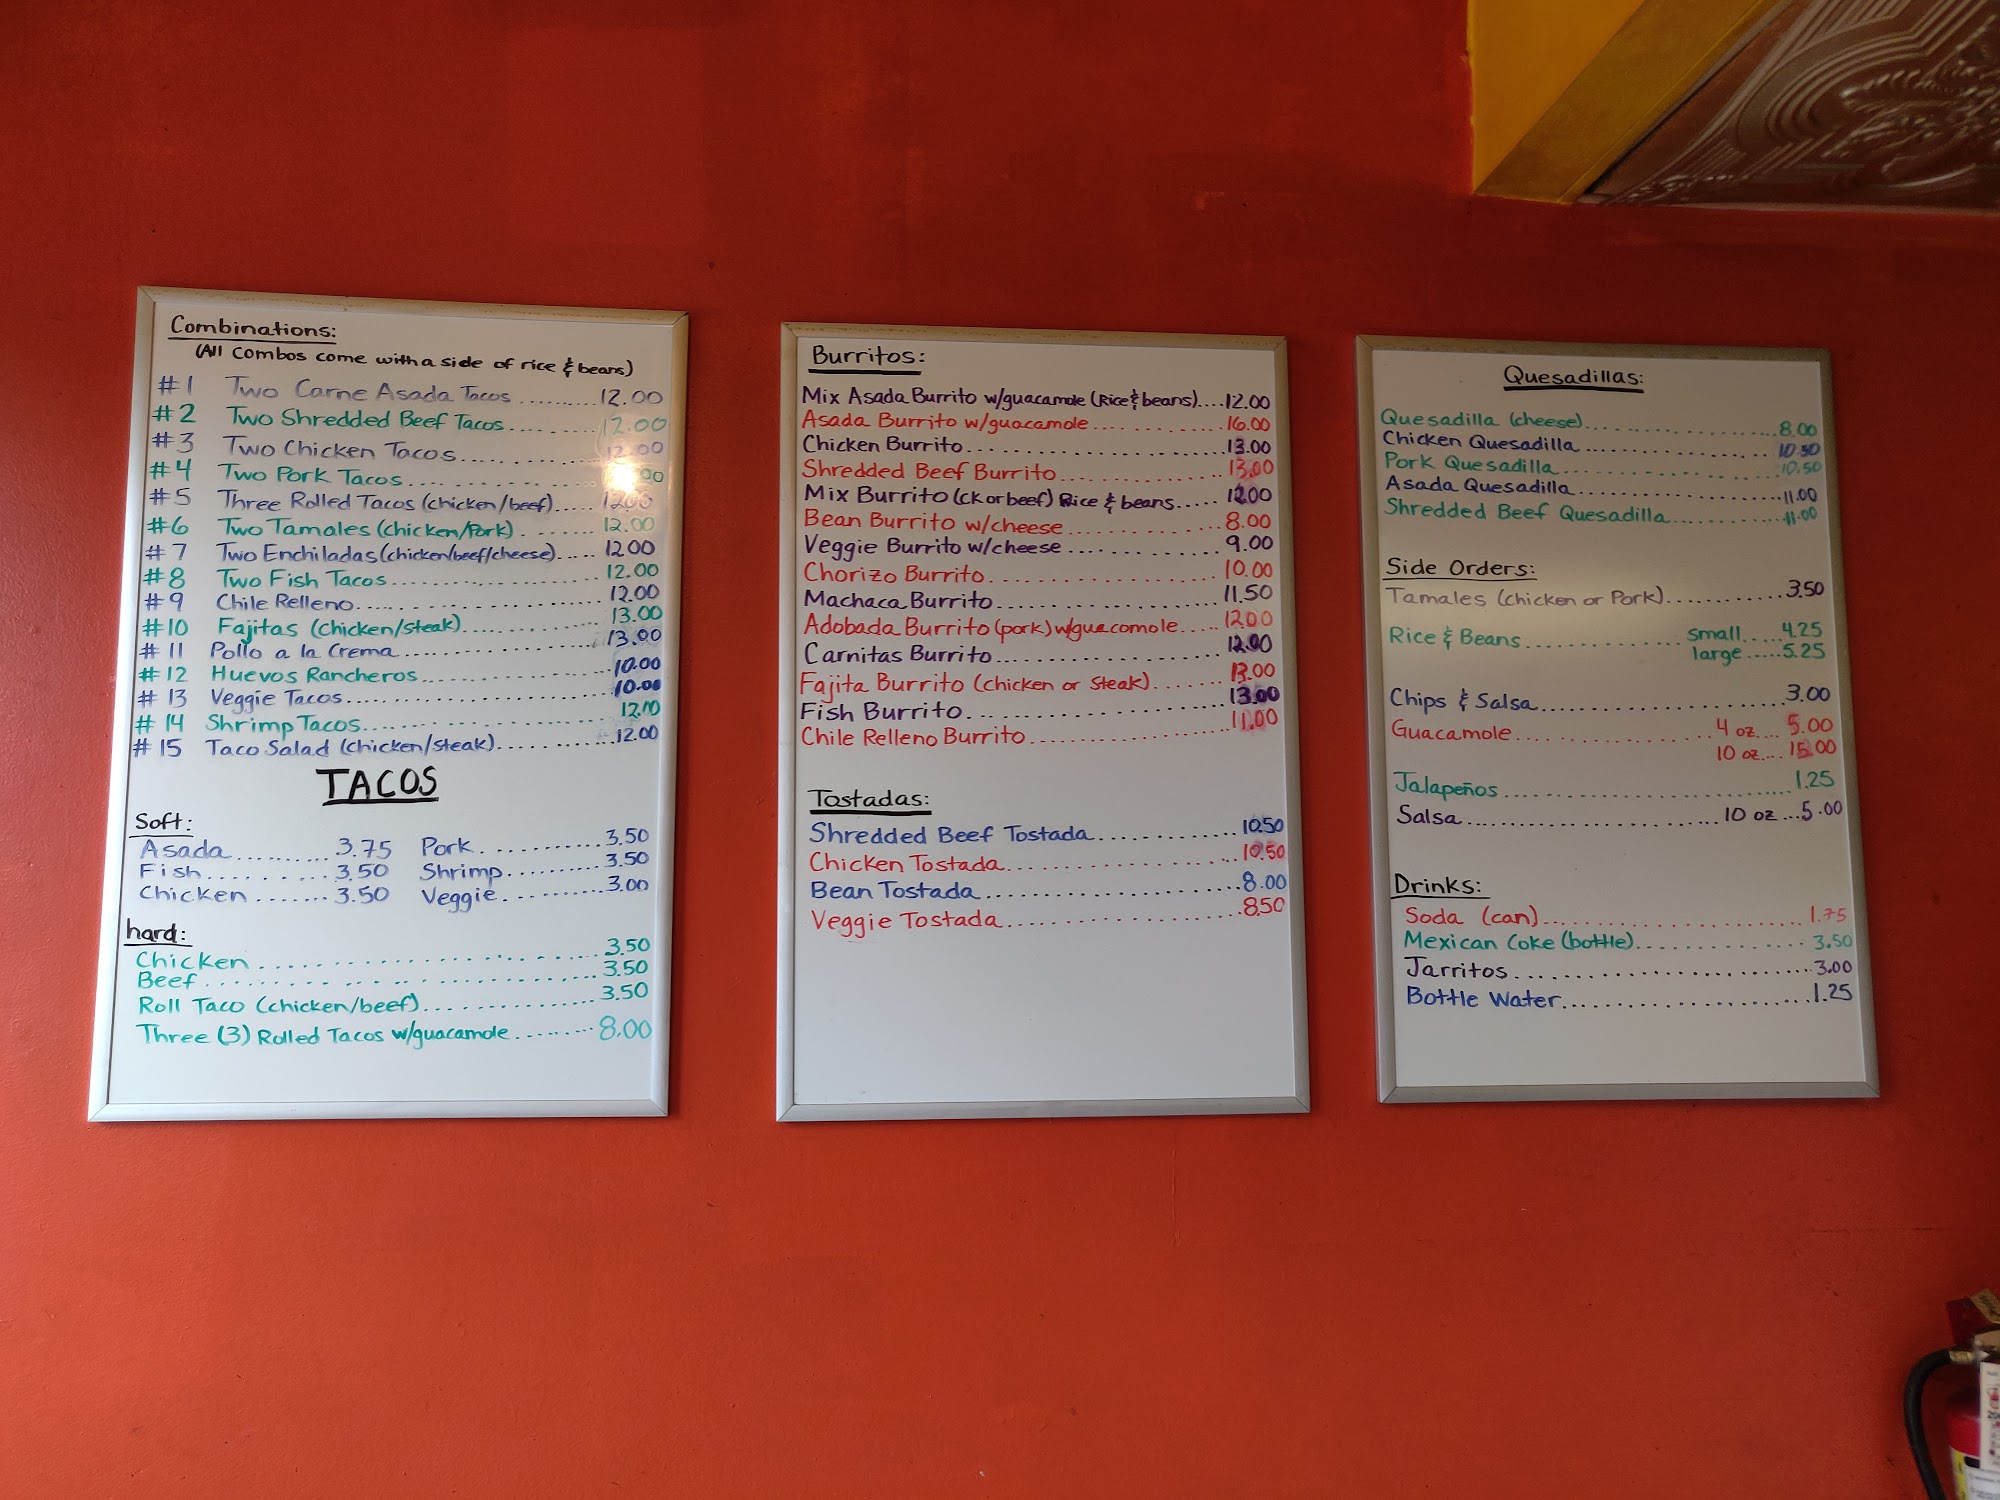 Combinations:
(All Combos come with a side of rice & beans)
#1 Two Carne Asada Tacos..........12.00
#2 Two Shredded Beef Tacos..........12.00
#3 Two Chicken Tacos..........12.00
#4 Two Pork Tacos..........
#5 Three Rolled Tacos (chicken/beef).....12.00
#6 Two Tamales (chicken/Pork).........12.00
#7 Two Enchiladas (chicken/beef/cheese)..... 12.00
#8 Two Fish Tacos..........12.00
#9 Chile Relleno..........12.00
#10 Fajitas (chicken/steak)..........13.00
#11 Pollo a la Crema..........13.00
#12 Huevos Rancheros..........10.00
#13 Veggie Tacos..........10.00
#14 Shrimp Tacos..........12.00
#15 Taco Salad (chicken/steak)..........12.00
TACOS
Soft:
Asada..........3.75 Pork..........3.50
Fish..........3.50 Shrimp..........3.50
Chicken.......3.50 Veggie..........3.00
hard:
Chicken..........3.50
Beef..........3.50
Roll Taco (chicken/beef)..........3.50
Three (3) Rolled Tacos w/guacamole.........8.00
Burritos:
Mix Asada Burrito w/guacamole (Rice & beans)....12.00
Asada Burrito w/guacamole..........16.00
Chicken Burrito..........13.00
Shredded Beef Burrito..........13.00
Mix Burrito (ck or beef) Rice & beans....12.00
Bean Burrito w/cheese..........8.00
Veggie Burrito w/cheese..........9.00
Chorizo Burrito..........10.00
Machaca Burrito..........11.50
Adobada Burrito (pork) w/guacomole.....12.00
Carnitas Burrito..........12.00
Fajita Burrito (chicken or steak).......13.00
Fish Burrito..........13.00
Chile Relleno Burrito..........11.00
Tostadas:
Shredded Beef Tostada..........10.50
Chicken Tostada..........10.50
Bean Tostada..........8.00
Veggie Tostada..........8.50
Quesadillas:
Quesadilla (cheese)..........8.00
Chicken Quesadilla..........10.50
Pork Quesadilla..........10.50
Asada Quesadilla..........11.00
Shredded Beef Quesadilla..........11.00
Side Orders:
Tamales (chicken or Pork)..........3.50
Rice & Beans..........small.....4.25
large.....5.25
Chips & Salsa..........3.00
Guacamole..........4 oz....5.00
10 oz....15.00
Jalapeños..........1.25
Salsa..........10 oz...5.00
Drinks:
Soda (can)..........1.75
Mexican Coke (bottle)..........3.50
Jarritos..........3.00
Bottle Water..........1.25